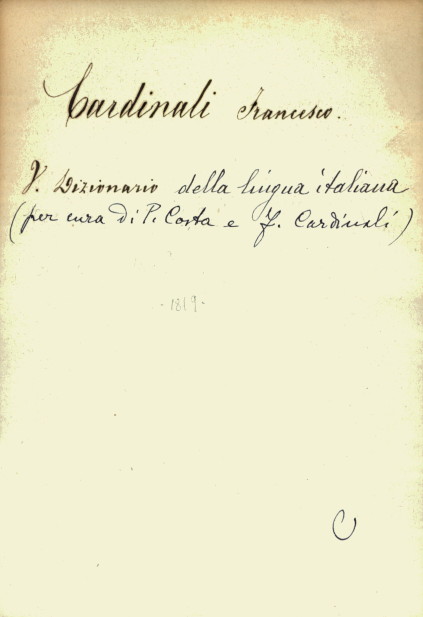 Cardinali Francesco.
V. Dizionario della lingua italiana
(per cura di P. Costa e F. Cardinali)
- 1819 -
C